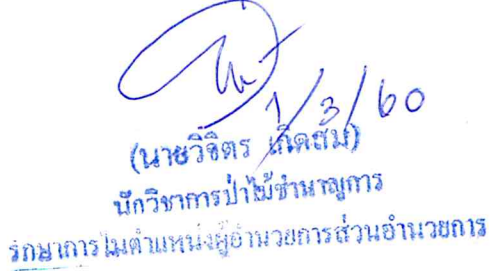 1/3/60
(นายวิจิตร เกิดสม)
นักวิชาการป่าไม้ชำนาญการ
รักษาการในตำแหน่งผู้อำนวยการส่วนอำนวยการ